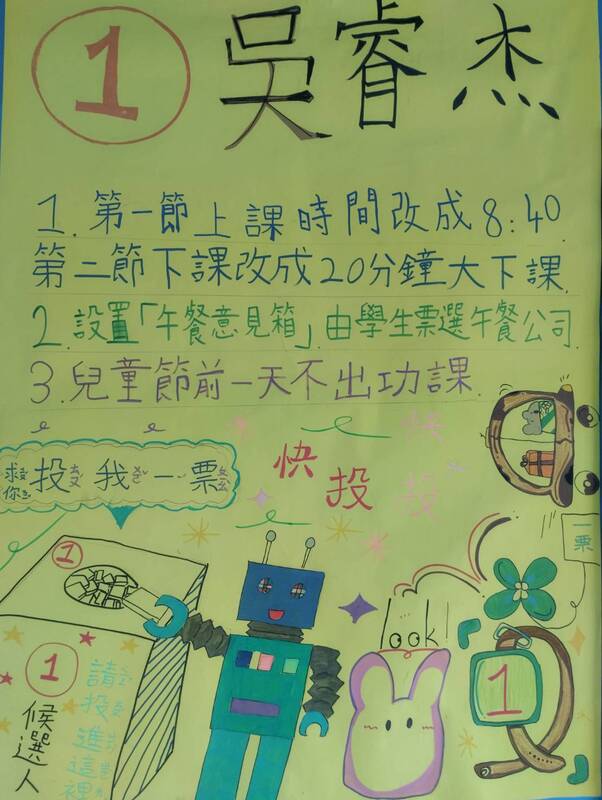 1 吳睿杰
1. 第一節上課時間改成8:40
第二節下課改成20分鐘大下課.
2. 設置「午餐意見箱」.由學生票選午餐公司.
3. 兒童節前一天不出功課.
快投
快投
求ㄑㄧㄡˊ你ㄋㄧˇ
投ㄊㄡˊ我ㄨㄛˇ一ㄧˊ票ㄆㄧㄠˋ
一票
1
look!
1
1
候選人
請投進這裡